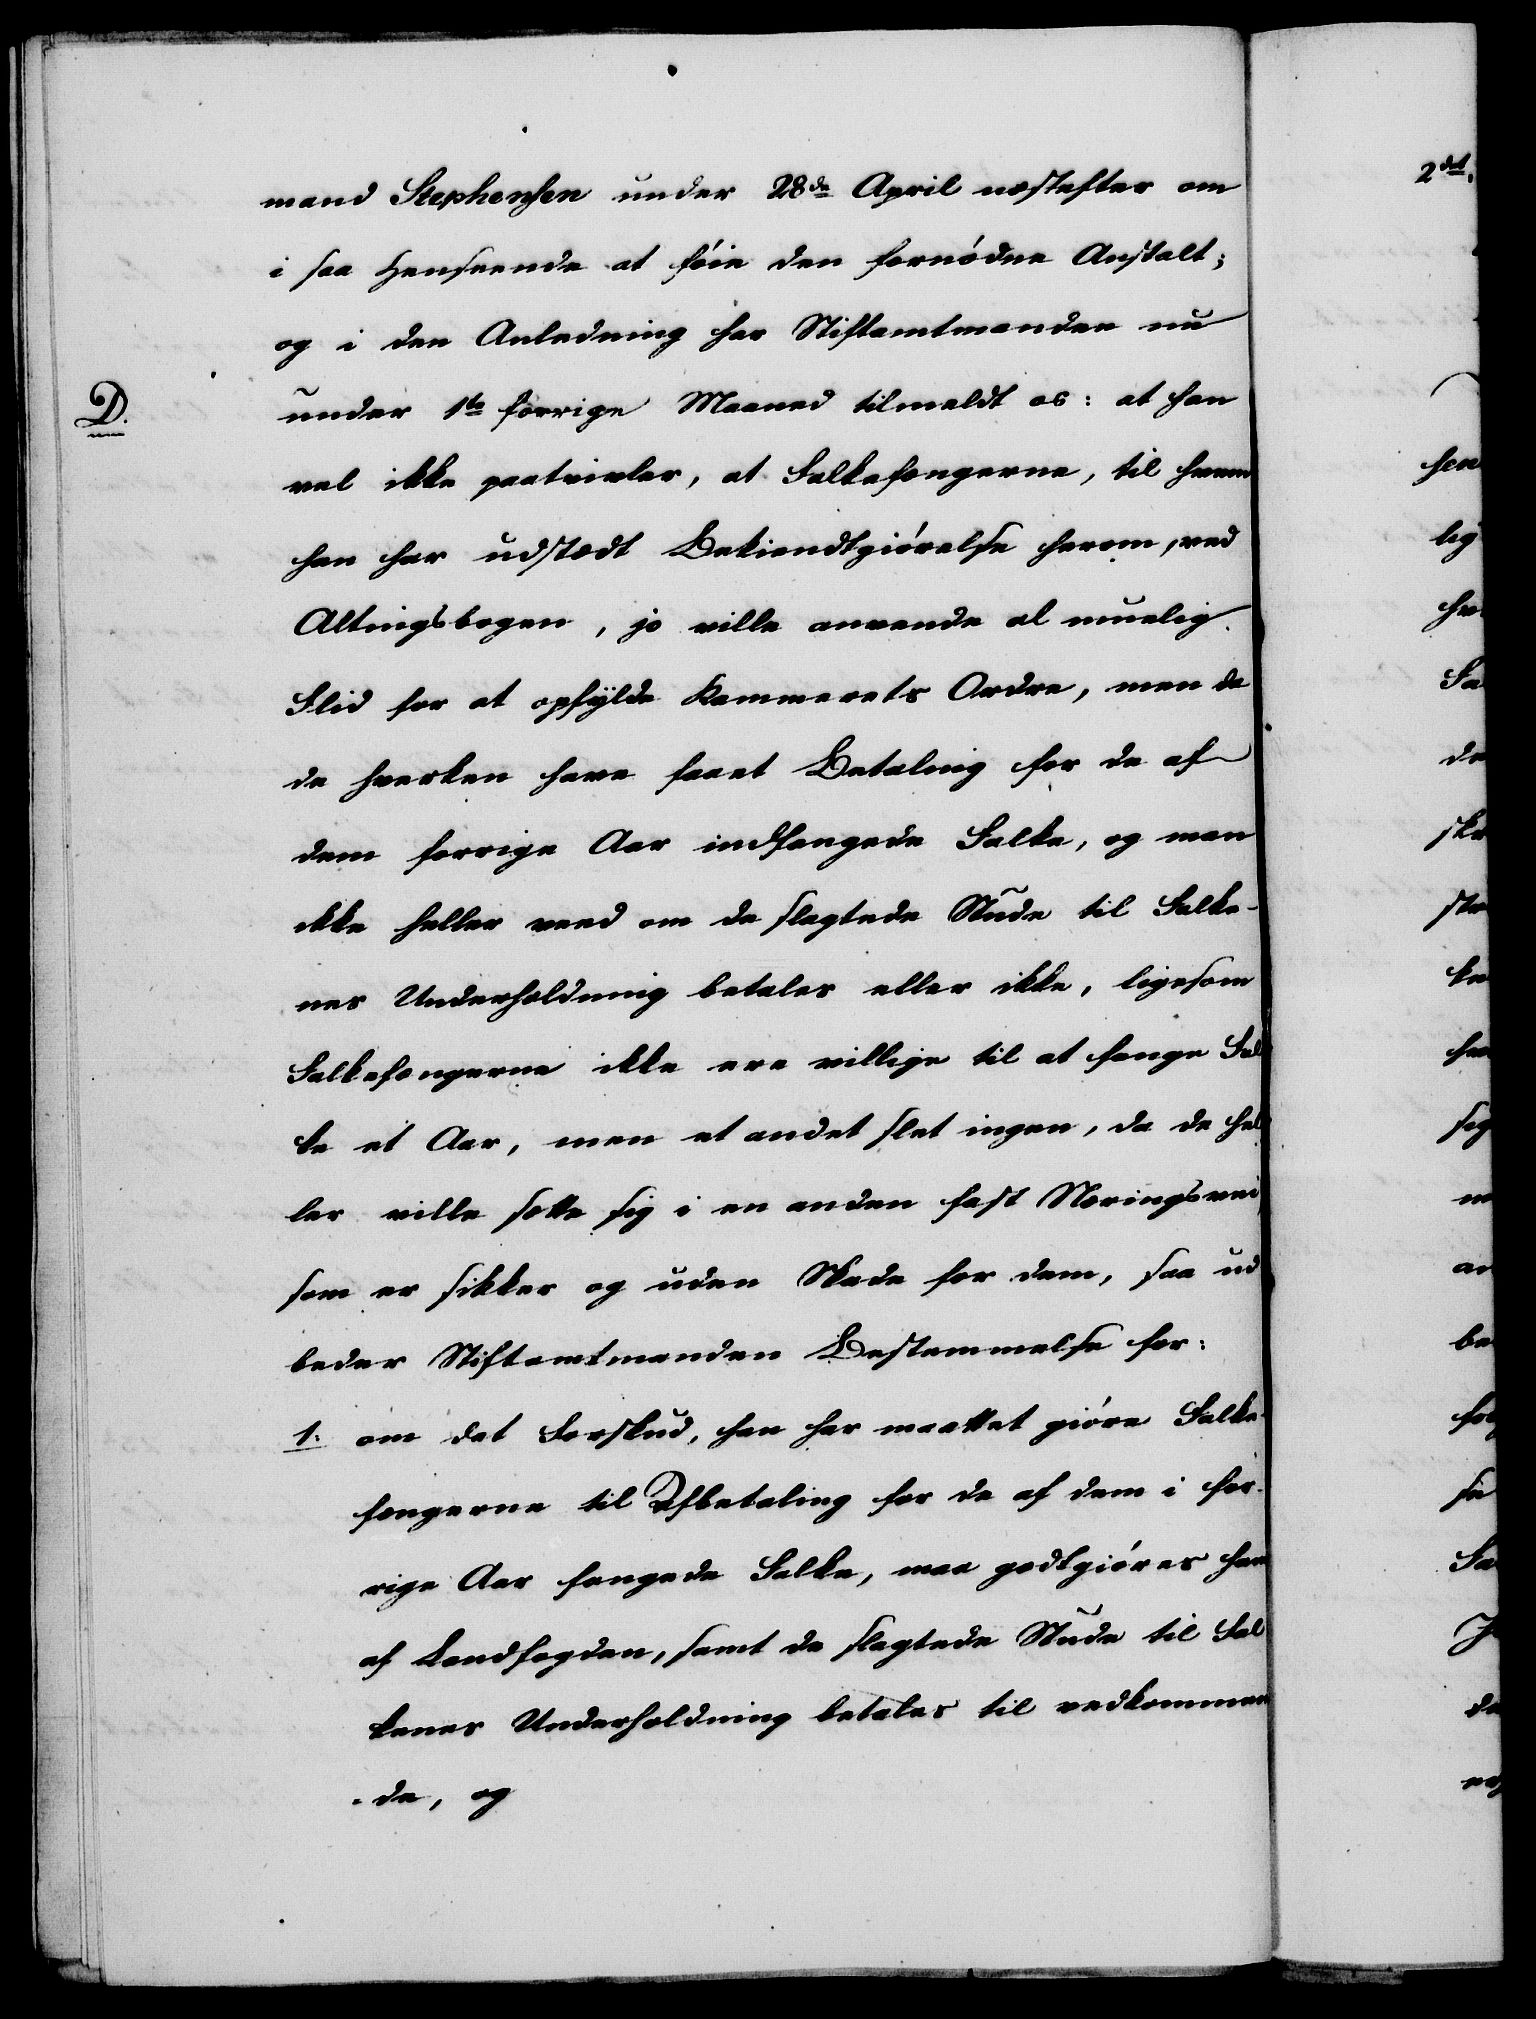 mand Stephensen under 28de April næstefter om
i saa Henseende at föie den fornödne Anstalt;
og i den Anledning har Stiftamtmanden nu
D.
under 1te forrige Maaned tilmeldt os: at han
vel ikke paatvivler, at Falkefangerne, til hvem
han har udstædt Bekiendtgiörelse herom, ved
Altingsbogen, jo ville anvende al muelig
Flid for at opfylde Kammerets Ordre, men da
de hverken have faaet Betaling for de af
dem forrige Aar indfangede Falke, og man
ikke heller veed om de slagtede Stude til Falke-
nes Underholdning betales eller ikke, ligesom
Falkefangerne ikke ere villige til at fange Fal
ke et Aar, men et andet slet ingen, da de hel
ler ville sætte sig i en anden fast Næringsvei
som er sikker og uden Skade for dem, saa ud
beder Stiftamtmanden Bestemmelse for:
1. om det Forskud, han har maattet giöre Falke-
fangerne til Afbetaling for de af dem i for-
rige Aar fangede Falke, maa godtgiöres ham
af Landfogden, samt de slagtede Stude til Fal
kenes Underholdning betales til vedkommen
de, og
2det.
sen
lig
hv
Fa
de
ske
ste
ke
har
sig
m
an
be
fog
se
Fa
de